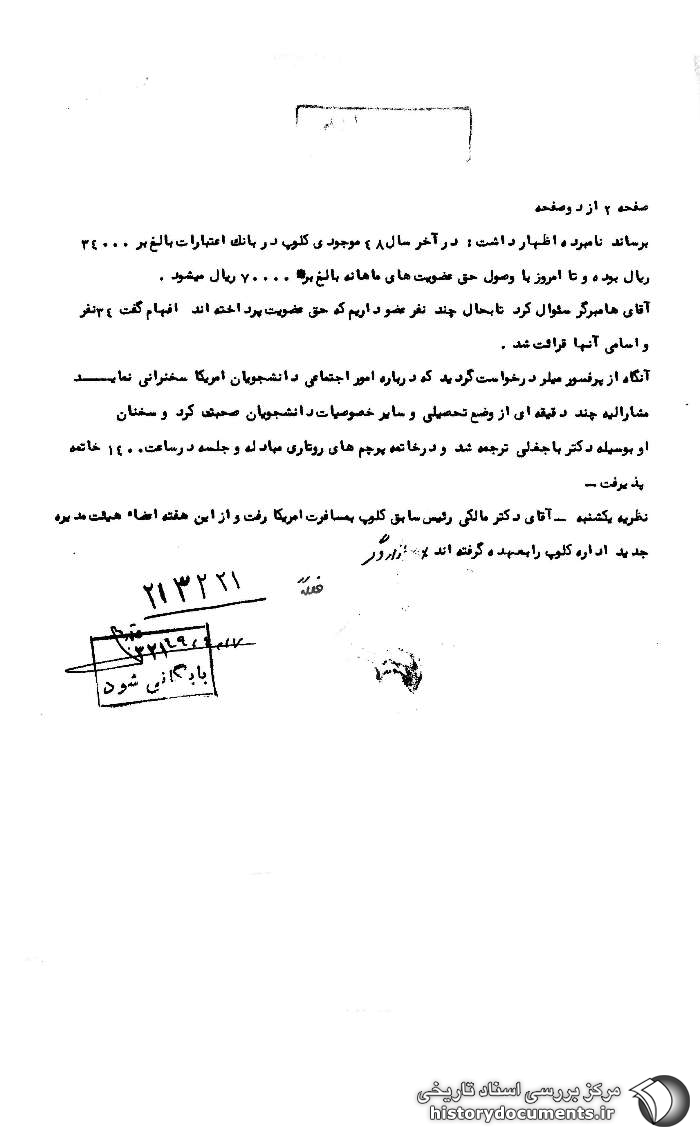 صفحه ۲ از دوصفحه
برساند نامبرده اظهار داشت : در آخر سال ۴۸ موجودی کلوپ در بانك اعتبارات بالغ بر ۳۴۰۰۰
ریال بوده و تا امروز با وصول حق عضویت های ماهانه بالغ بر ۷۰۰۰۰ ریال میشود .
آقای هامبرگر سئوال کرد تابحال چند نفر عضو داریم که حق عضویت پرداخته اند افهام گفت ۳۴نفر
و اسامی آنها قرائت شد .
آنگاه از پرفسور میلر درخواست گردید که درباره امور اجتماعی دانشجویان امریکا سخنرانی نماید
مشارالیه چند دقیقه ای از وضع تحصیلی و سایر خصوصیات دانشجویان صحبت کرد و سخنان
او بوسیله دکتر باجغلی ترجمه شد و درخاتمه پرچم های روتاری مبادله و جلسه در ساعت ۱۴۰۰ خاتمه
پذیرفت ــ
نظریه یکشنبه ــ آقای دکتر مالکی رئیس سابق کلوپ بمسافرت امریکا رفت و از این هفته اعضاء هیئت مدیره
جدید اداره کلوپ را بعهده گرفته اند
۲۱۳۲۲۱
بایگانی شود
مرکز بررسی اسناد تاریخی
historydocuments.ir